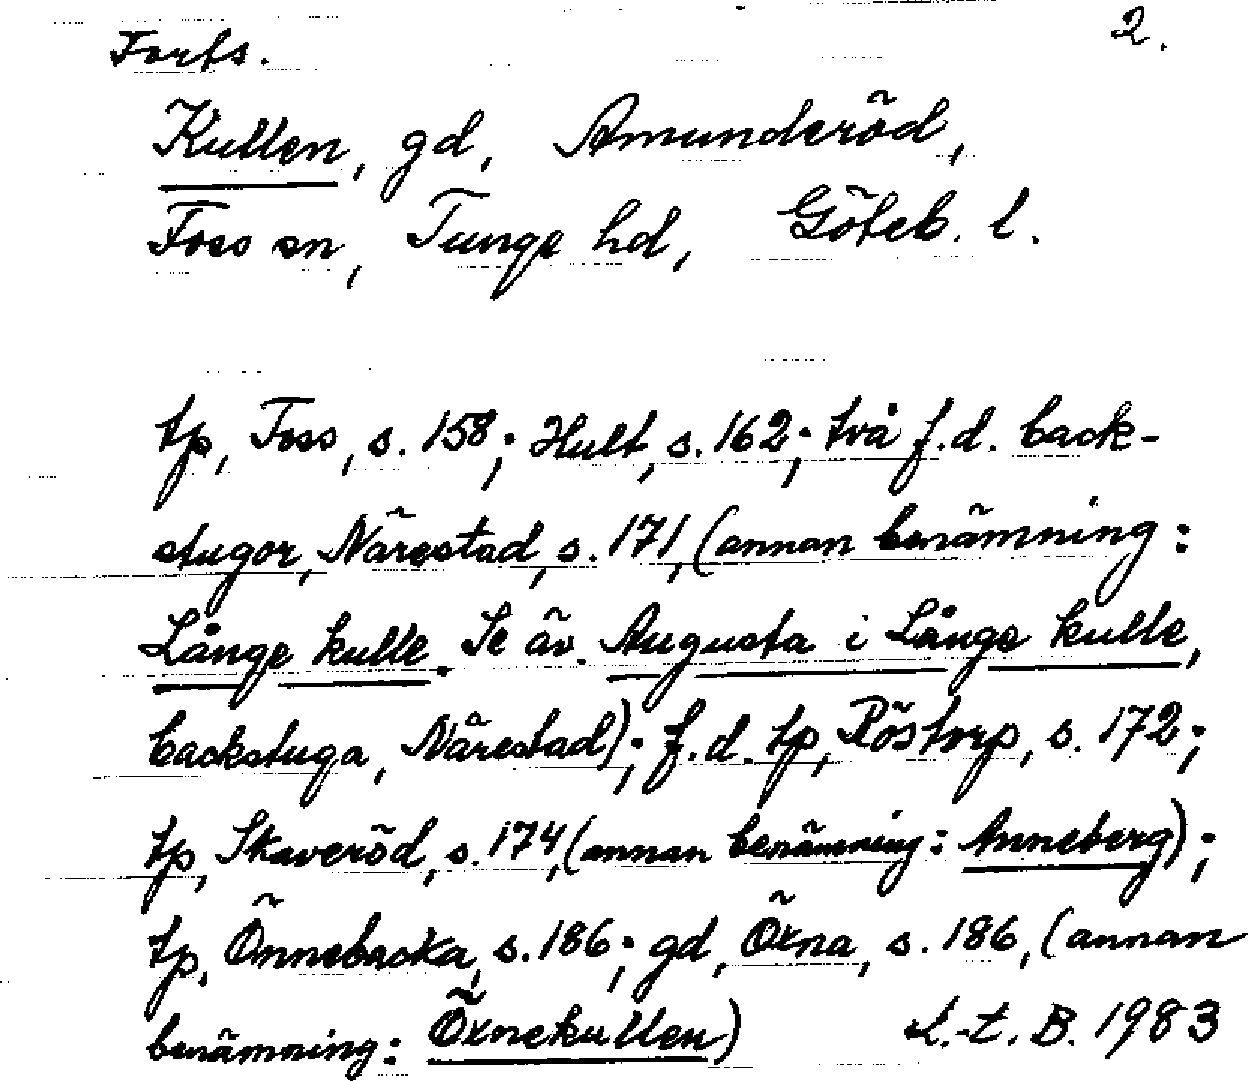 Forts. 2.
Kullen, gd, Amunderöd,
Foss sn, Tunge hd, Göteb. l.
tp, Foss, s. 158; Hult, s. 162; två f.d. back-
stugor, Närestad, s. 171, (annan benämning:
Långe kulle. Se äv. Augusta i Långe kulle,
backstuga, Närestad); f.d. tp, Röstorp, s. 172;
tp, Skaveröd, s. 174, (annan benämning: Anneberg);
tp, Önnebacka, s. 186; gd, Öxna, s. 186, (annan
benämning: Öxnekullen) L.-t. B. 1983